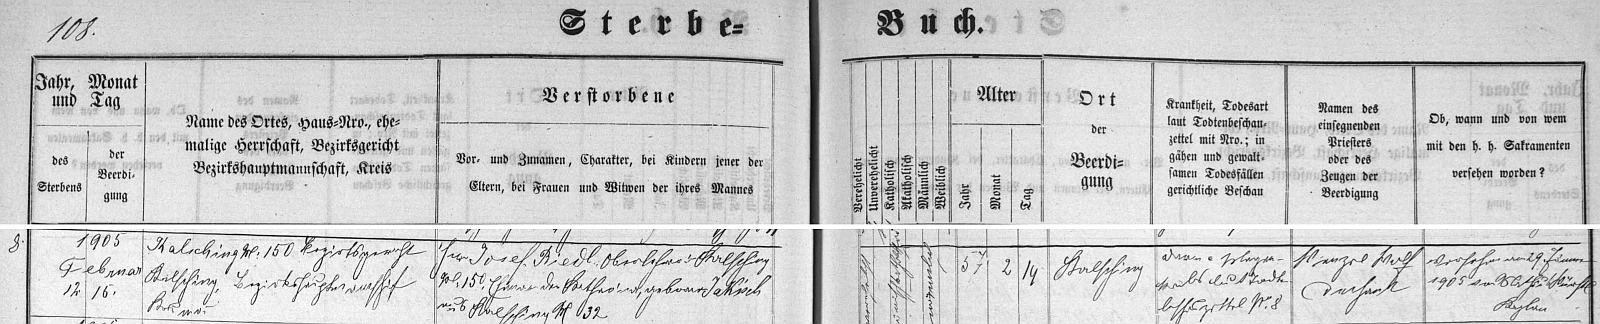 108.
Sterbe=
Buch.
Jahr, und
Monat Tag
des Sterbens
der Beerdi-
gung
Name des Ortes, Haus-Nro., ehe-
malige Herrschaft, Bezirksgericht
Bezirkshauptmannschaft, Kreis
Verstorbene
Vor- und Zunamen, Charakter, bei Kindern jener der
Eltern, bei Frauen und Witwen der ihres Mannes
Verehelicht
Unverehelicht
Katholisch
Akatholisch
Männlich
Weiblich
Alter
Jahr
Monat
Tag
Ort
der
Beerdi-
gung
Krankheit, Todesart
laut Todtenbeschau-
zettel mit Nro.; in
gähen und gewalt-
samen Todesfällen
gerichtliche Beschau
Namen des
einsegnenden
Priesters
oder des
Zeugen der
Beerdigung
Ob, wann und von wem
mit den h. h. Sakramenten
versehen worden?
8.
1905
Februar
12 15.
Kalsching N. 150 Bezirksgericht
Kalsching, Bezirkshauptmannschaft
Krumau
Herr Josef Riedl, Kalsching
No. 150, Katharina, geborne
aus Kalsching N 32
57 2 19
Kalsching
N. 8
Wenzel Wolf
Dechant
versehen am 29. Jänner
1905 von
Kaplan